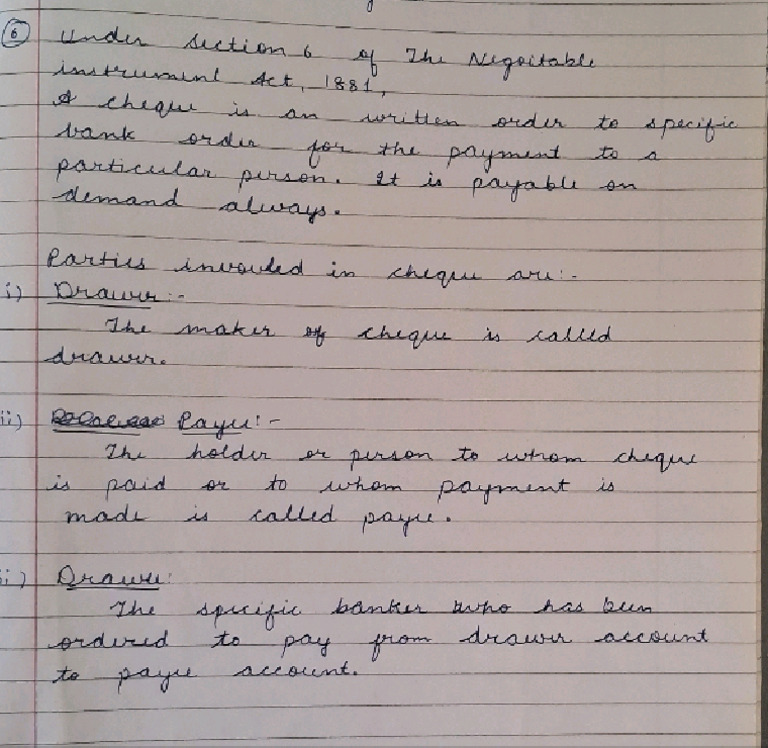 6 Under Section 6 of The Negoitable
instrument Act, 1881,
A cheque is an written order to specific
bank order for the payment to a
particular person. It is payable on
demand always.
Parties invouled in cheque are:-
i) Drawer:-
The maker of cheque is called
drawer.
ii) Payee:-
The holder or person to whom cheque
is paid or to whom payment is
made is called payee.
ii) Drawee:
The specific banker who has been
ordered to pay from drawer account
to payee account.